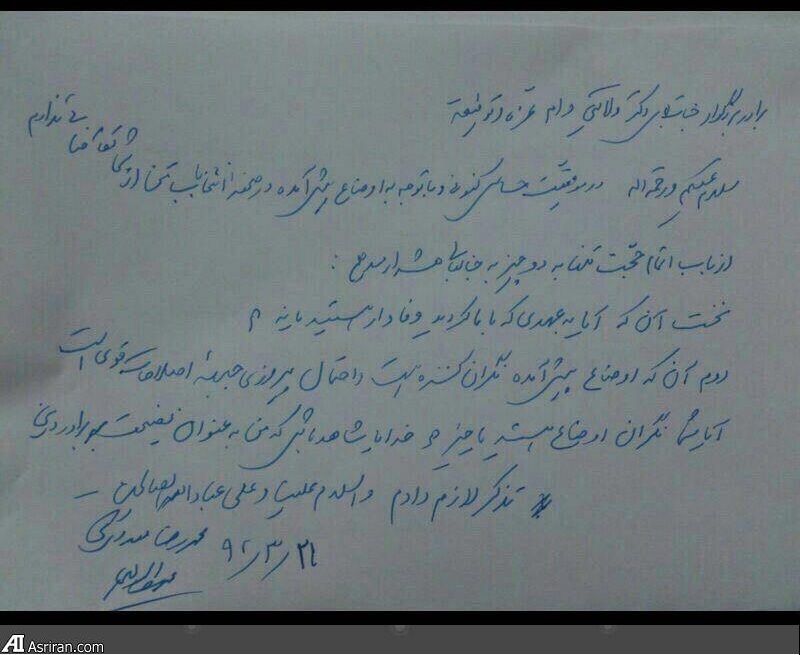 برادر بزرگوار جناب آقای دکتر ولایتی دام عزه و توفیقه
سلام علیکم و رحمه اله در موقعیت حساس کنونی و با توجه به اوضاع پیش آمده در صحنه انتخابات تنها از شما تقاضا
از باب اتمام حجت تنها به دو چیز به جنابعالی هشدار میدهم :
نخست آن که آیا به عهدی که با ما کردید وفادار هستید یا نه ؟
دوم آن که اوضاع پیش آمده نگران کننده است و احتمال پیروزی جبهه اصلاحات قوی است
آیا شما نگران اوضاع هستید یا خیر ؟ خدایا شاهد باش که من به عنوان نصیحت به برادر دینی
تذکر لازم دادم والسلام علینا و علی عباد الله الصالحین
محمدرضا مهدوی کنی
۹۲/۳/۲۱
Asriran.com